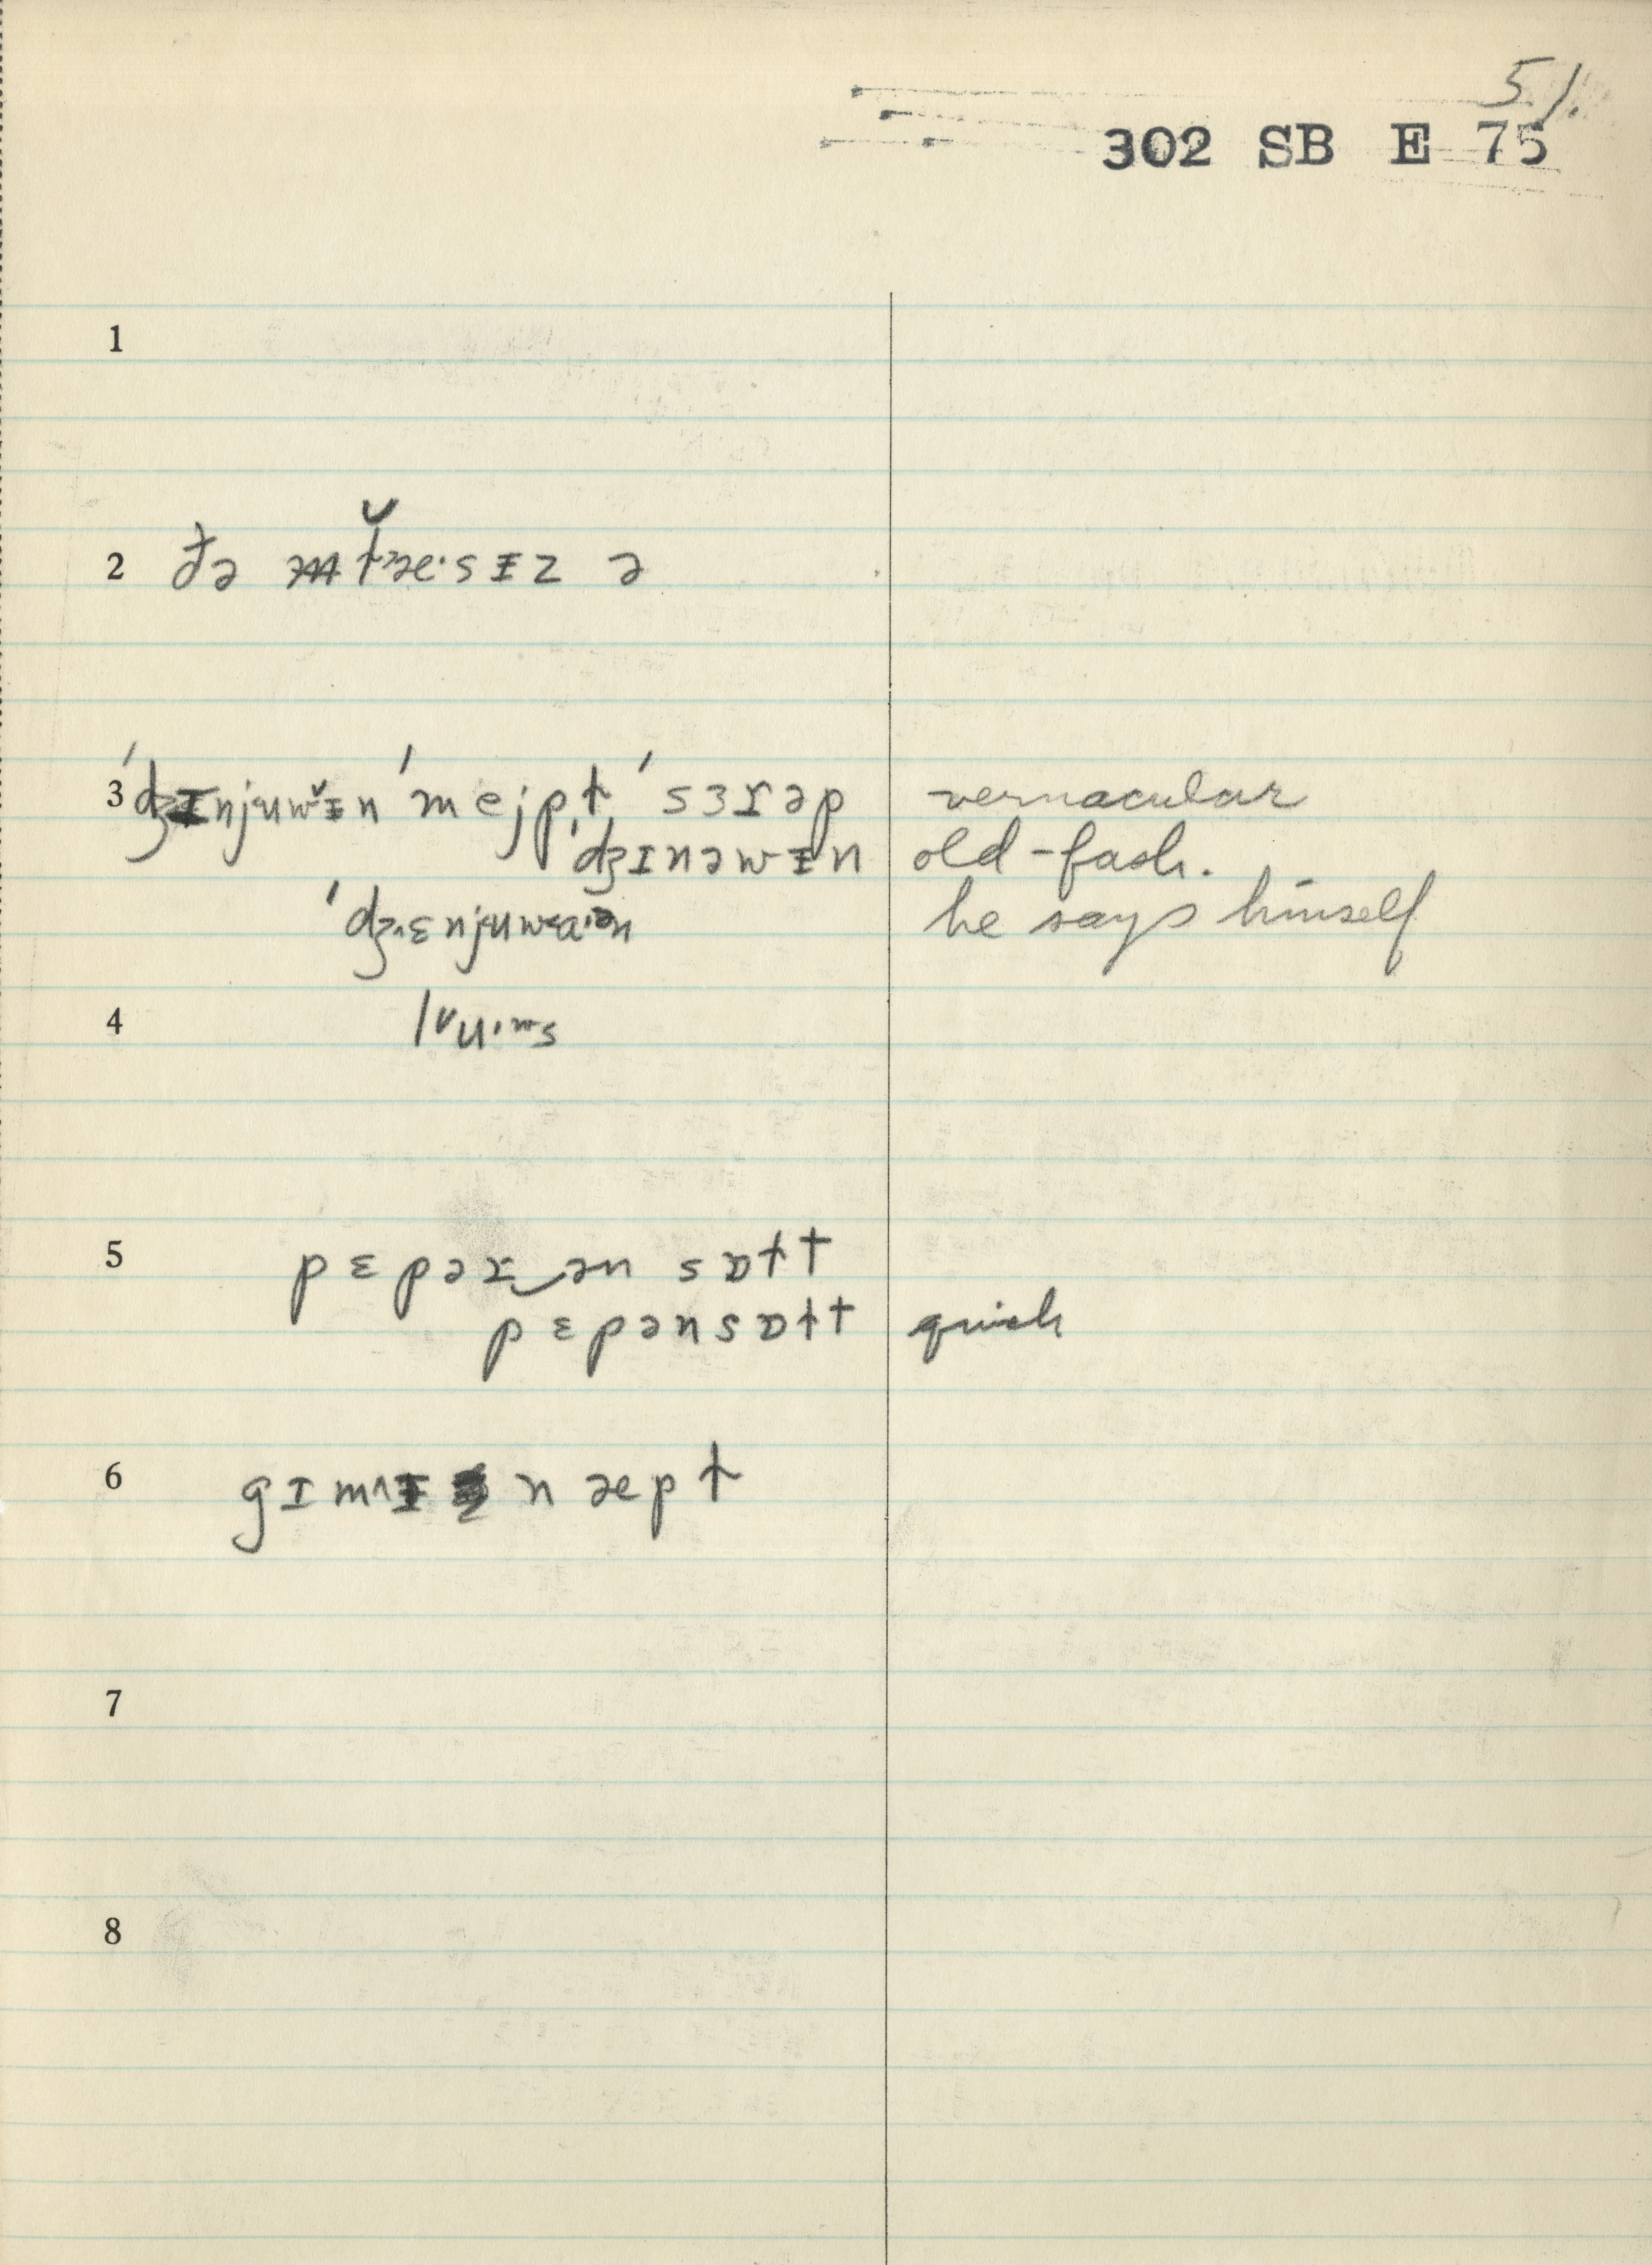 51.
302 SB E 75
1
2 ðə mɫæ·sɪz ə
3 ˈdʒɪnjuwɪn ˈmejpɫ ˈsɜrəp vernacular
ˈdʒɪnəwɪn old-fash.
ˈdʒɛnjuwaən he says himself
4
5 pɛpər‿ən sɒɫt
pɛpənsɒɫt quick
6 gɪmɪ n æpɫ
7
8